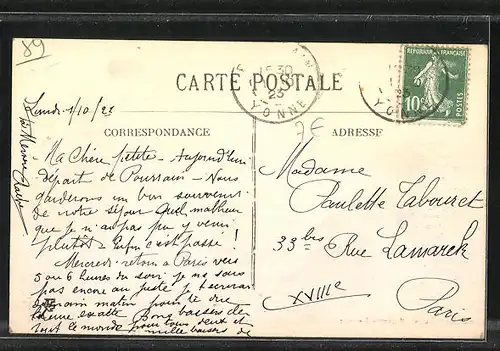 89
CARTE POSTALE
15 30
25
YONNE
REPUBLIQUE FRANÇAISE
10c
POSTES
YONNE
CORRESPONDANCE
ADRESSE
2E
Lundi 1/10/25
Ma Chère petite - Aujourd'hui
départ de Pourrain - Nous
garderons un bon souvenir
de notre séjour quel malheur
que je n'ai pas pu y venir
plutôt - Enfin c'est passé !
Mercredi retour à Paris vers
5 ou 6 heures du soir je ne sais
pas encore au juste je t'écrirai
demain matin pour te dire
l'heure exacte Bons baisers de
tout le monde pour tous deux et
mille baisers de
Madame
Paulette Tabouret
33 bis Rue Lamarck
XVIIIe
Paris